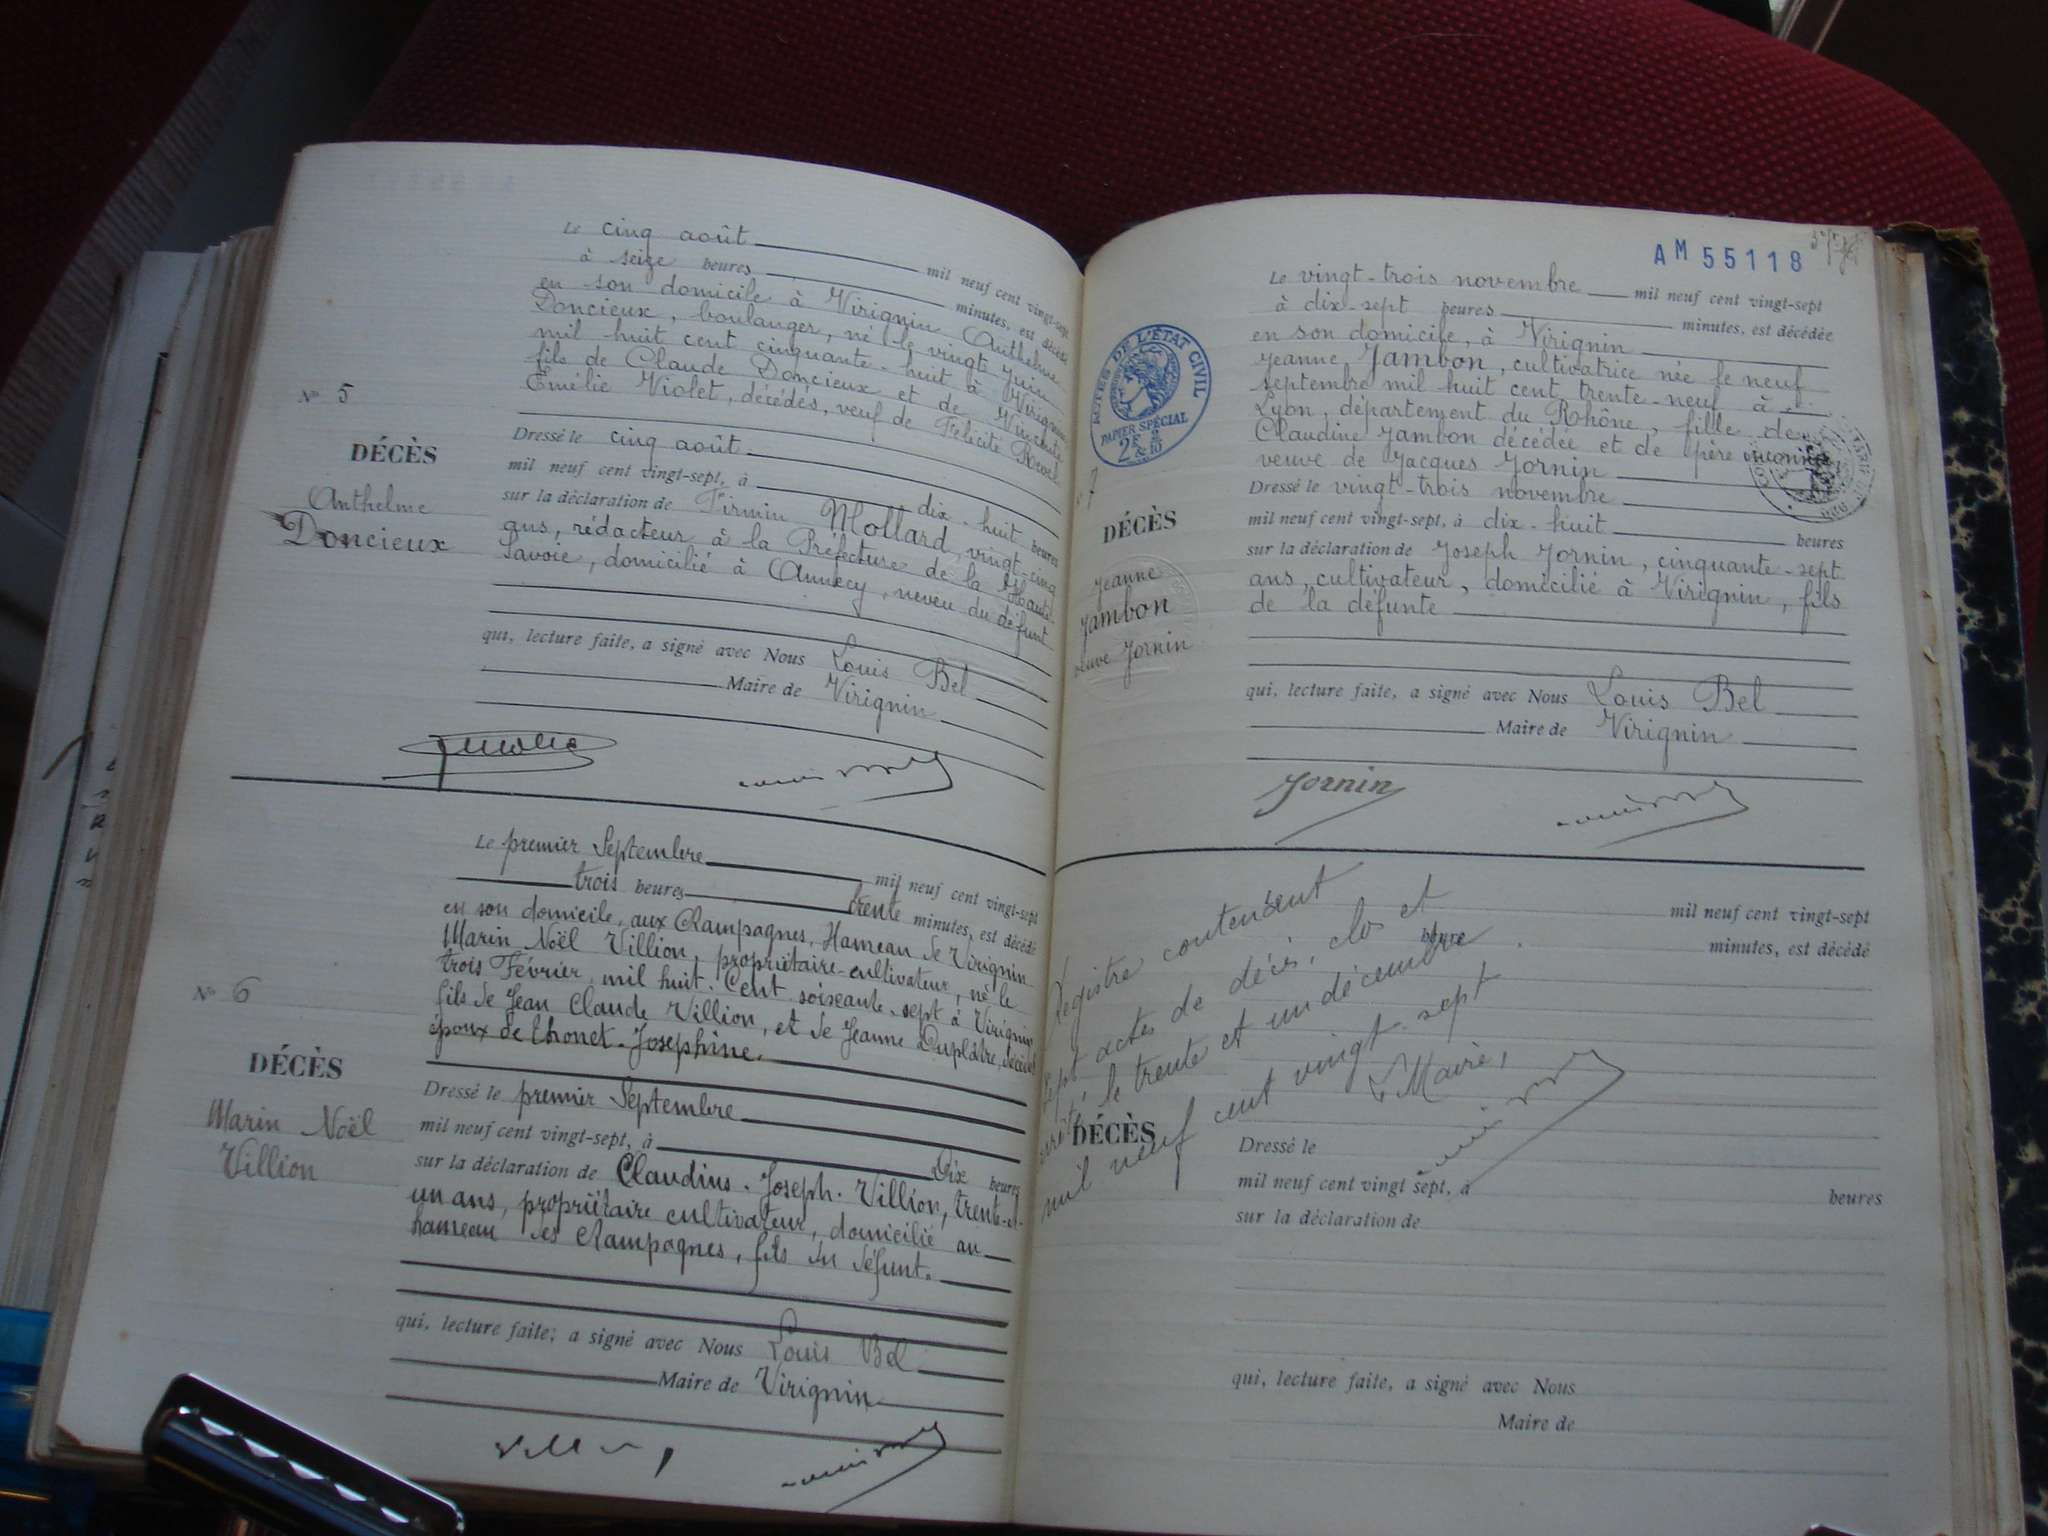 Le cinq août mil neuf cent vingt-sept
à seize heures minutes, est décédé
en son domicile à Virignin Anthelme
Doncieux, boulanger, né le vingt Juin
mil huit cent cinquante-huit à Virignin
fils de Claude Doncieux et de
Emélie Violet, décédés, veuf de Félicité
N° 5
DÉCÈS
Anthelme
Doncieux
Dressé le cinq août
mil neuf cent vingt-sept, à dix-huit heures
sur la déclaration de Firmin Mollard, vingt-cinq
ans, rédacteur à la Préfecture de la Haute-
Savoie, domicilié à Annecy, neveu du défunt
qui, lecture faite, a signé avec Nous Louis Bel
Maire de Virignin
Le premier Septembre mil neuf cent vingt-sept
trois heures trente minutes, est décédé
en son domicile, aux Champagnes, Hameau de Virignin
Marin Noël Villion, propriétaire-cultivateur, né le
trois Février mil huit. Cent soixante-sept à Virignin
fils de Jean Claude Villion, et de Jeanne Duplâtre, décédés
époux de Thonet-Joséphine.
N° 6
DÉCÈS
Marin Noël
Villion
Dressé le premier Septembre
mil neuf cent vingt-sept, à Dix heures
sur la déclaration de Claudius-Joseph-Villion, trente-et-
un ans, propriétaire cultivateur, domicilié au
hameau des Champagnes, fils du défunt.
qui, lecture faite, a signé avec Nous Louis Bel
Maire de Virignin
AM 55118
Le vingt-trois novembre mil neuf cent vingt-sept
à dix-sept heures minutes, est décédée
en son domicile, à Virignin
Jeanne Jambon, cultivatrice née le neuf
septembre mil huit cent trente-neuf à
Lyon, département du Rhône, fille de
Claudine Jambon décédée et de père inconnu,
veuve de Jacques Jornin
ACTES DE L'ÉTAT CIVIL
PAPIER SPÉCIAL
7
DÉCÈS
Jeanne
Jambon
veuve Jornin
Dressé le vingt-trois novembre
mil neuf cent vingt-sept, à dix-huit heures
sur la déclaration de Joseph Jornin, cinquante-sept
ans, cultivateur, domicilié à Virignin, fils
de la défunte
qui, lecture faite, a signé avec Nous Louis Bel
Maire de Virignin
Jornin
Registre contenant
sept actes de décès, clos et
arrêté, le trente et un décembre
mil neuf cent vingt-sept
Le Maire,
mil neuf cent vingt-sept
heure minutes, est décédé
DÉCÈS
Dressé le
mil neuf cent vingt sept, à heures
sur la déclaration de
qui, lecture faite, a signé avec Nous
Maire de